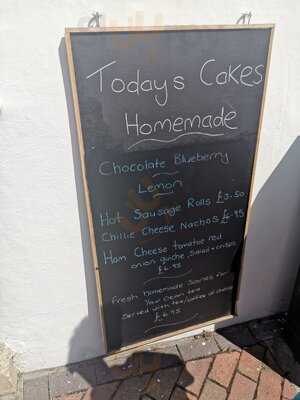 Today's Cakes
Homemade
Chocolate Blueberry
Lemon
Hot Sausage Rolls £3.50
Chillie Cheese Nachos £4.95
Ham Cheese tomatoe red
onion quiche, Salad + crisps
£6.95
Fresh homemade Scones Jam
Clotted cream tea
Served with tea/coffee of choice
£6.95